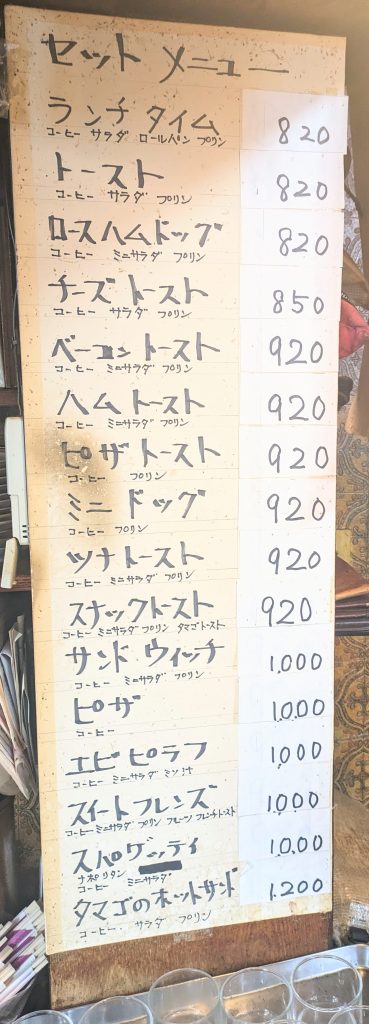 セット メニュー
ランチ タイム 820
コーヒー サラダ ロールパン プリン
トースト 820
コーヒー サラダ プリン
ロースハムドッグ 820
コーヒー ミニサラダ プリン
チーズ トースト 850
コーヒー サラダ プリン
ベーコン トースト 920
コーヒー ミニサラダ プリン
ハム トースト 920
コーヒー ミニサラダ プリン
ピザ トースト 920
コーヒー プリン
ミニ ドッグ 920
コーヒー プリン
ツナトースト 920
コーヒー ミニサラダ プリン
スナックトースト 920
コーヒー ミニサラダ プリン タマゴトースト
サンド ウィッチ 1.000
コーヒー ミニサラダ プリン
ピザ 1.000
コーヒー
エビ ピラフ 1.000
コーヒー ミニサラダ ミソ汁
スイートフレンズ 1.000
コーヒー ミニサラダ プリン フルーツ フレンチトースト
スパゲッティ 1.000
ナポリタン
コーヒー ミニサラダ
タマゴのホットサンド 1.200
コーヒー. サラダ プリン